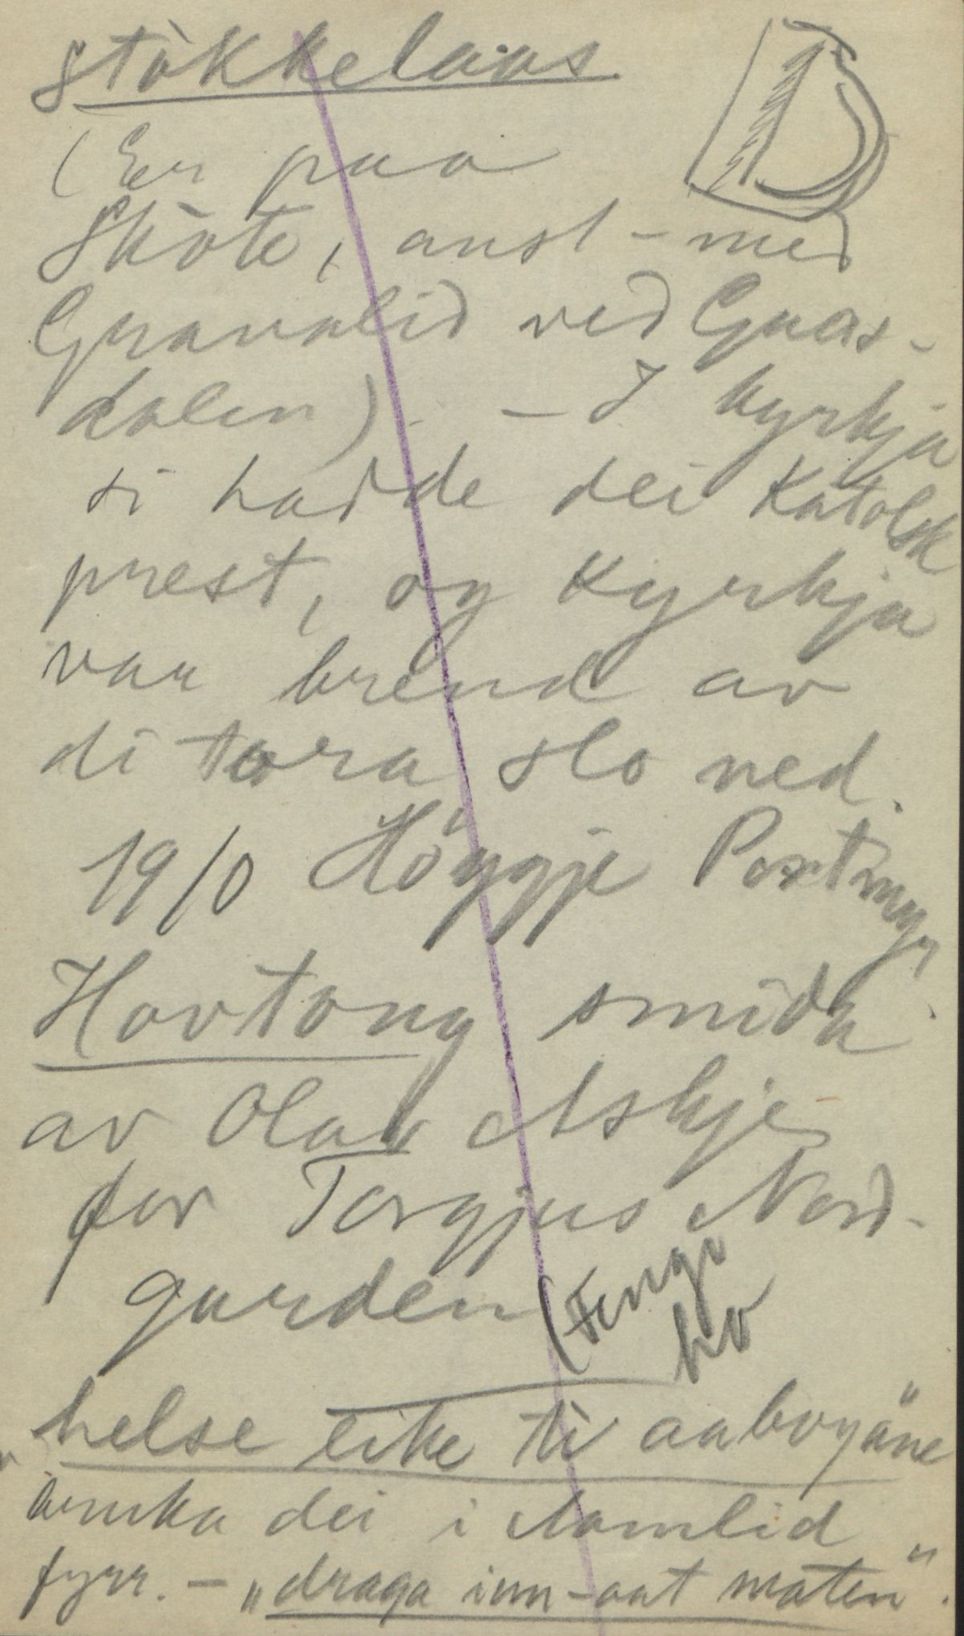 Stókkelaas
(Er paa
Skòte, aust-med
Granalid ved Guas-
dalen). – I kyrkja
si hadde dei Katolsk
prest, og kyrkja
vaa brend av
di tora slo ned.
1910 Höggje Postmyr.
Hovtong smida
av Olav Askje
for Torgjus Nord-
garden (Fenge
ho
„helse eike ti aaboyäne"
bruka dei i Aamlid
fyrr. – „draga inn-aat maten".